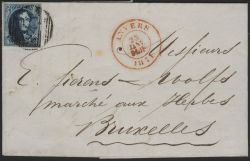 ANVERS
Messieurs
E. Fierens-Wolfs
marché aux Herbes
Bruxelles